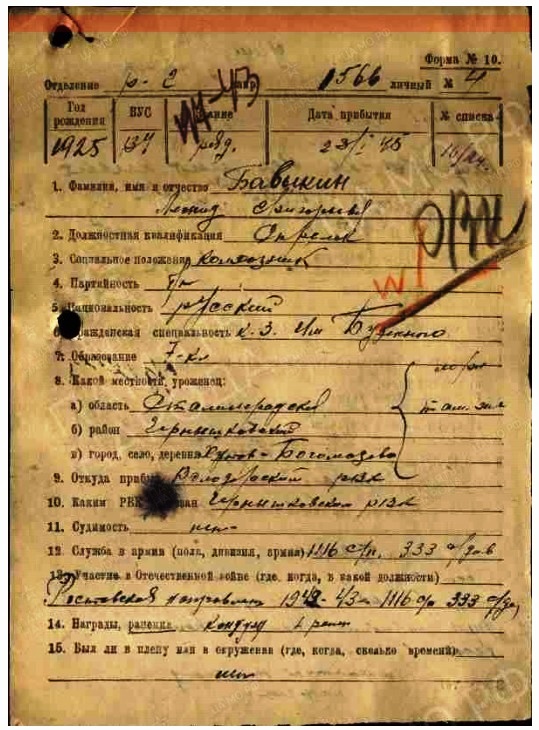 Форма № 10.
Отделение р-2 1566 личный № 4
Год рождения ВУС Дата прибытия № списка
1925 134 ряд. 23/I 45
1. Фамилия, имя и отчество Бавыкин
Леонид Григорьев
2. Должностная квалификация Стрелок
3. Социальное положение колхозник
4. Партийность б/п
5. Национальность русский
6. Гражданская специальность к.з. им Буденного
7. Образование 7-кл
8. Какой местности, уроженец:
а) область Сталинградская
б) район Чернышковский
в) город, село, деревня Хутов-Богомазово
9. Откуда прибыл рвк
10. Каким РВК Чернышковском рвк
11. Судимость нет
12. Служба в армии (полк, дивизия, армия) 1116 с/п, 333 с/див
13. Участие в Отечественной войне (где, когда, в какой должности)
Ростовская 1943-43 1116 с/п 333 с/див
14. Награды, ранения
15. Был ли в плену или в окружении (где, когда, сколько времени)
нет